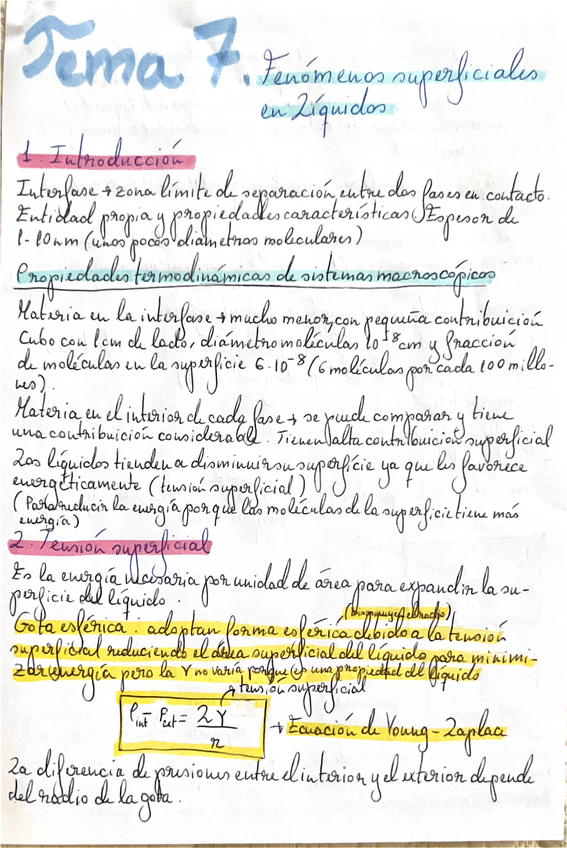 Tema 7. Fenómenos superficiales
en Líquidos
1. Introducción
Interfase → zona límite de separación entre dos fases en contacto.
Entidad propia y propiedades características. Espesor de
1-10nm (unos pocos diámetros moleculares)
Propiedades termodinámicas de sistemas macroscópicos
Materia en la interfase → mucho menor, con pequeña contribuición
Cubo con 1cm de lado, diámetro moléculas 10⁻⁸cm y fracción
de moléculas en la superficie 6·10⁻⁸ (6 moléculas por cada 100 millo-
nes).
Materia en el interior de cada fase → se puede comparar y tiene
una contribuición considerable. Tienen alta contribuición superficial
Los líquidos tienden a disminuir su superfície ya que les favorece
energéticamente (tensión superficial)
(Para reducir la energía porque las moléculas de la superficie tiene más
energía)
2. Tensión superficial
Es la energía necesaria por unidad de área para expandir la su-
perficie del líquido.
Gota esférica: adoptan forma esférica debido a la tensión
superficial reduciendo el área superficial del líquido para minimi-
zar energía pero la γ no varía porque es una propiedad del líquido
→ tensión superficial
Pint - Pext = 2γ/r → Ecuación de Young-Laplace
La diferencia de presiones entre el interior y el exterior depende
del radio de la gota.